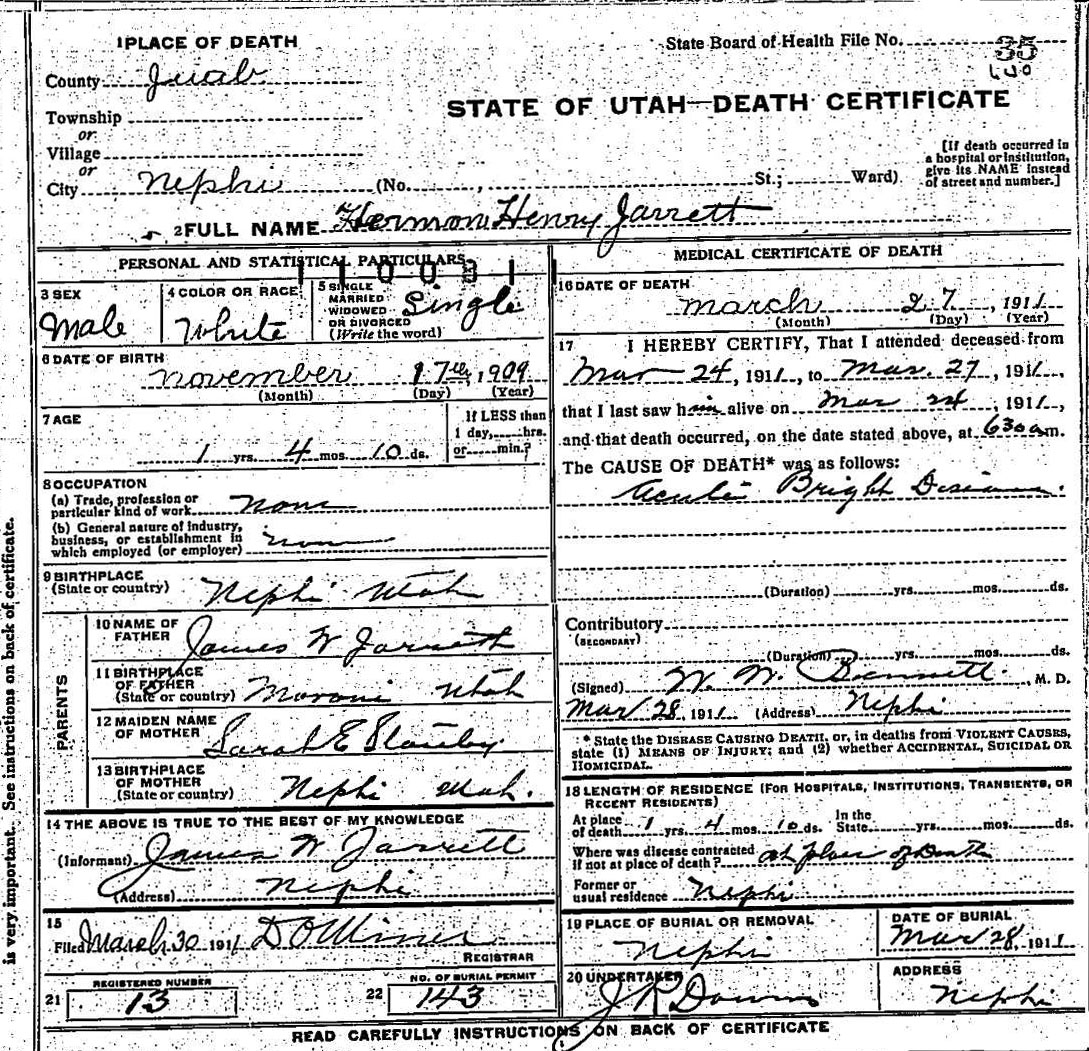 1 PLACE OF DEATH
State Board of Health File No. 35
County Juab
STATE OF UTAH—DEATH CERTIFICATE
Township
or
Village
or
City Nephi (No. , St.; Ward)
[If death occurred in
a hospital or institution,
give its NAME instead
of street and number.]
2 FULL NAME Hermon Henry Jarrett
PERSONAL AND STATISTICAL PARTICULARS
3 SEX
Male
4 COLOR OR RACE
White
5 SINGLE
MARRIED
WIDOWED
OR DIVORCED
(Write the word)
Single
6 DATE OF BIRTH
November 17th, 1909
(Month) (Day) (Year)
7 AGE
1 yrs. 4 mos. 10 ds.
If LESS than
1 day, hrs.
or min.?
8 OCCUPATION
(a) Trade, profession or
particular kind of work None
(b) General nature of industry,
business, or establishment in
which employed (or employer)
9 BIRTHPLACE
(State or country) Nephi Utah
PARENTS
10 NAME OF
FATHER James W Jarrett
11 BIRTHPLACE
OF FATHER
(State or country) Moroni Utah
12 MAIDEN NAME
OF MOTHER Sarah E
13 BIRTHPLACE
OF MOTHER
(State or country) Nephi Utah.
14 THE ABOVE IS TRUE TO THE BEST OF MY KNOWLEDGE
(Informant) James W Jarrett
(Address) Nephi
15
Filed March 30 1911 D O Miner
REGISTRAR
REGISTERED NUMBER
21 13
NO. OF BURIAL PERMIT
22 143
MEDICAL CERTIFICATE OF DEATH
16 DATE OF DEATH
March 27, 1911
(Month) (Day) (Year)
17 I HEREBY CERTIFY, That I attended deceased from
Mar 24, 1911, to Mar. 27, 1911,
that I last saw him alive on Mar 24, 1911,
and that death occurred, on the date stated above, at 630 am.
The CAUSE OF DEATH* was as follows:
Acute Bright Disease.
(Duration) yrs. mos. ds.
Contributory
(SECONDARY)
(Duration) yrs. mos. ds.
(Signed) W. W. Bennett, M. D.
Mar 28, 1911 (Address) Nephi
* State the DISEASE CAUSING DEATH, or, in deaths from VIOLENT CAUSES,
state (1) MEANS OF INJURY; and (2) whether ACCIDENTAL, SUICIDAL OR
HOMICIDAL.
18 LENGTH OF RESIDENCE (FOR HOSPITALS, INSTITUTIONS, TRANSIENTS, OR
RECENT RESIDENTS)
At place
of death 1 yrs. 4 mos. 10 ds.
In the
State yrs. mos. ds.
Where was disease contracted
if not at place of death? at place of Death
Former or
usual residence Nephi
19 PLACE OF BURIAL OR REMOVAL
Nephi
DATE OF BURIAL
Mar 28, 1911
20 UNDERTAKER
J R Downs
ADDRESS
Nephi
READ CAREFULLY INSTRUCTIONS ON BACK OF CERTIFICATE
is very important. See instructions on back of certificate.